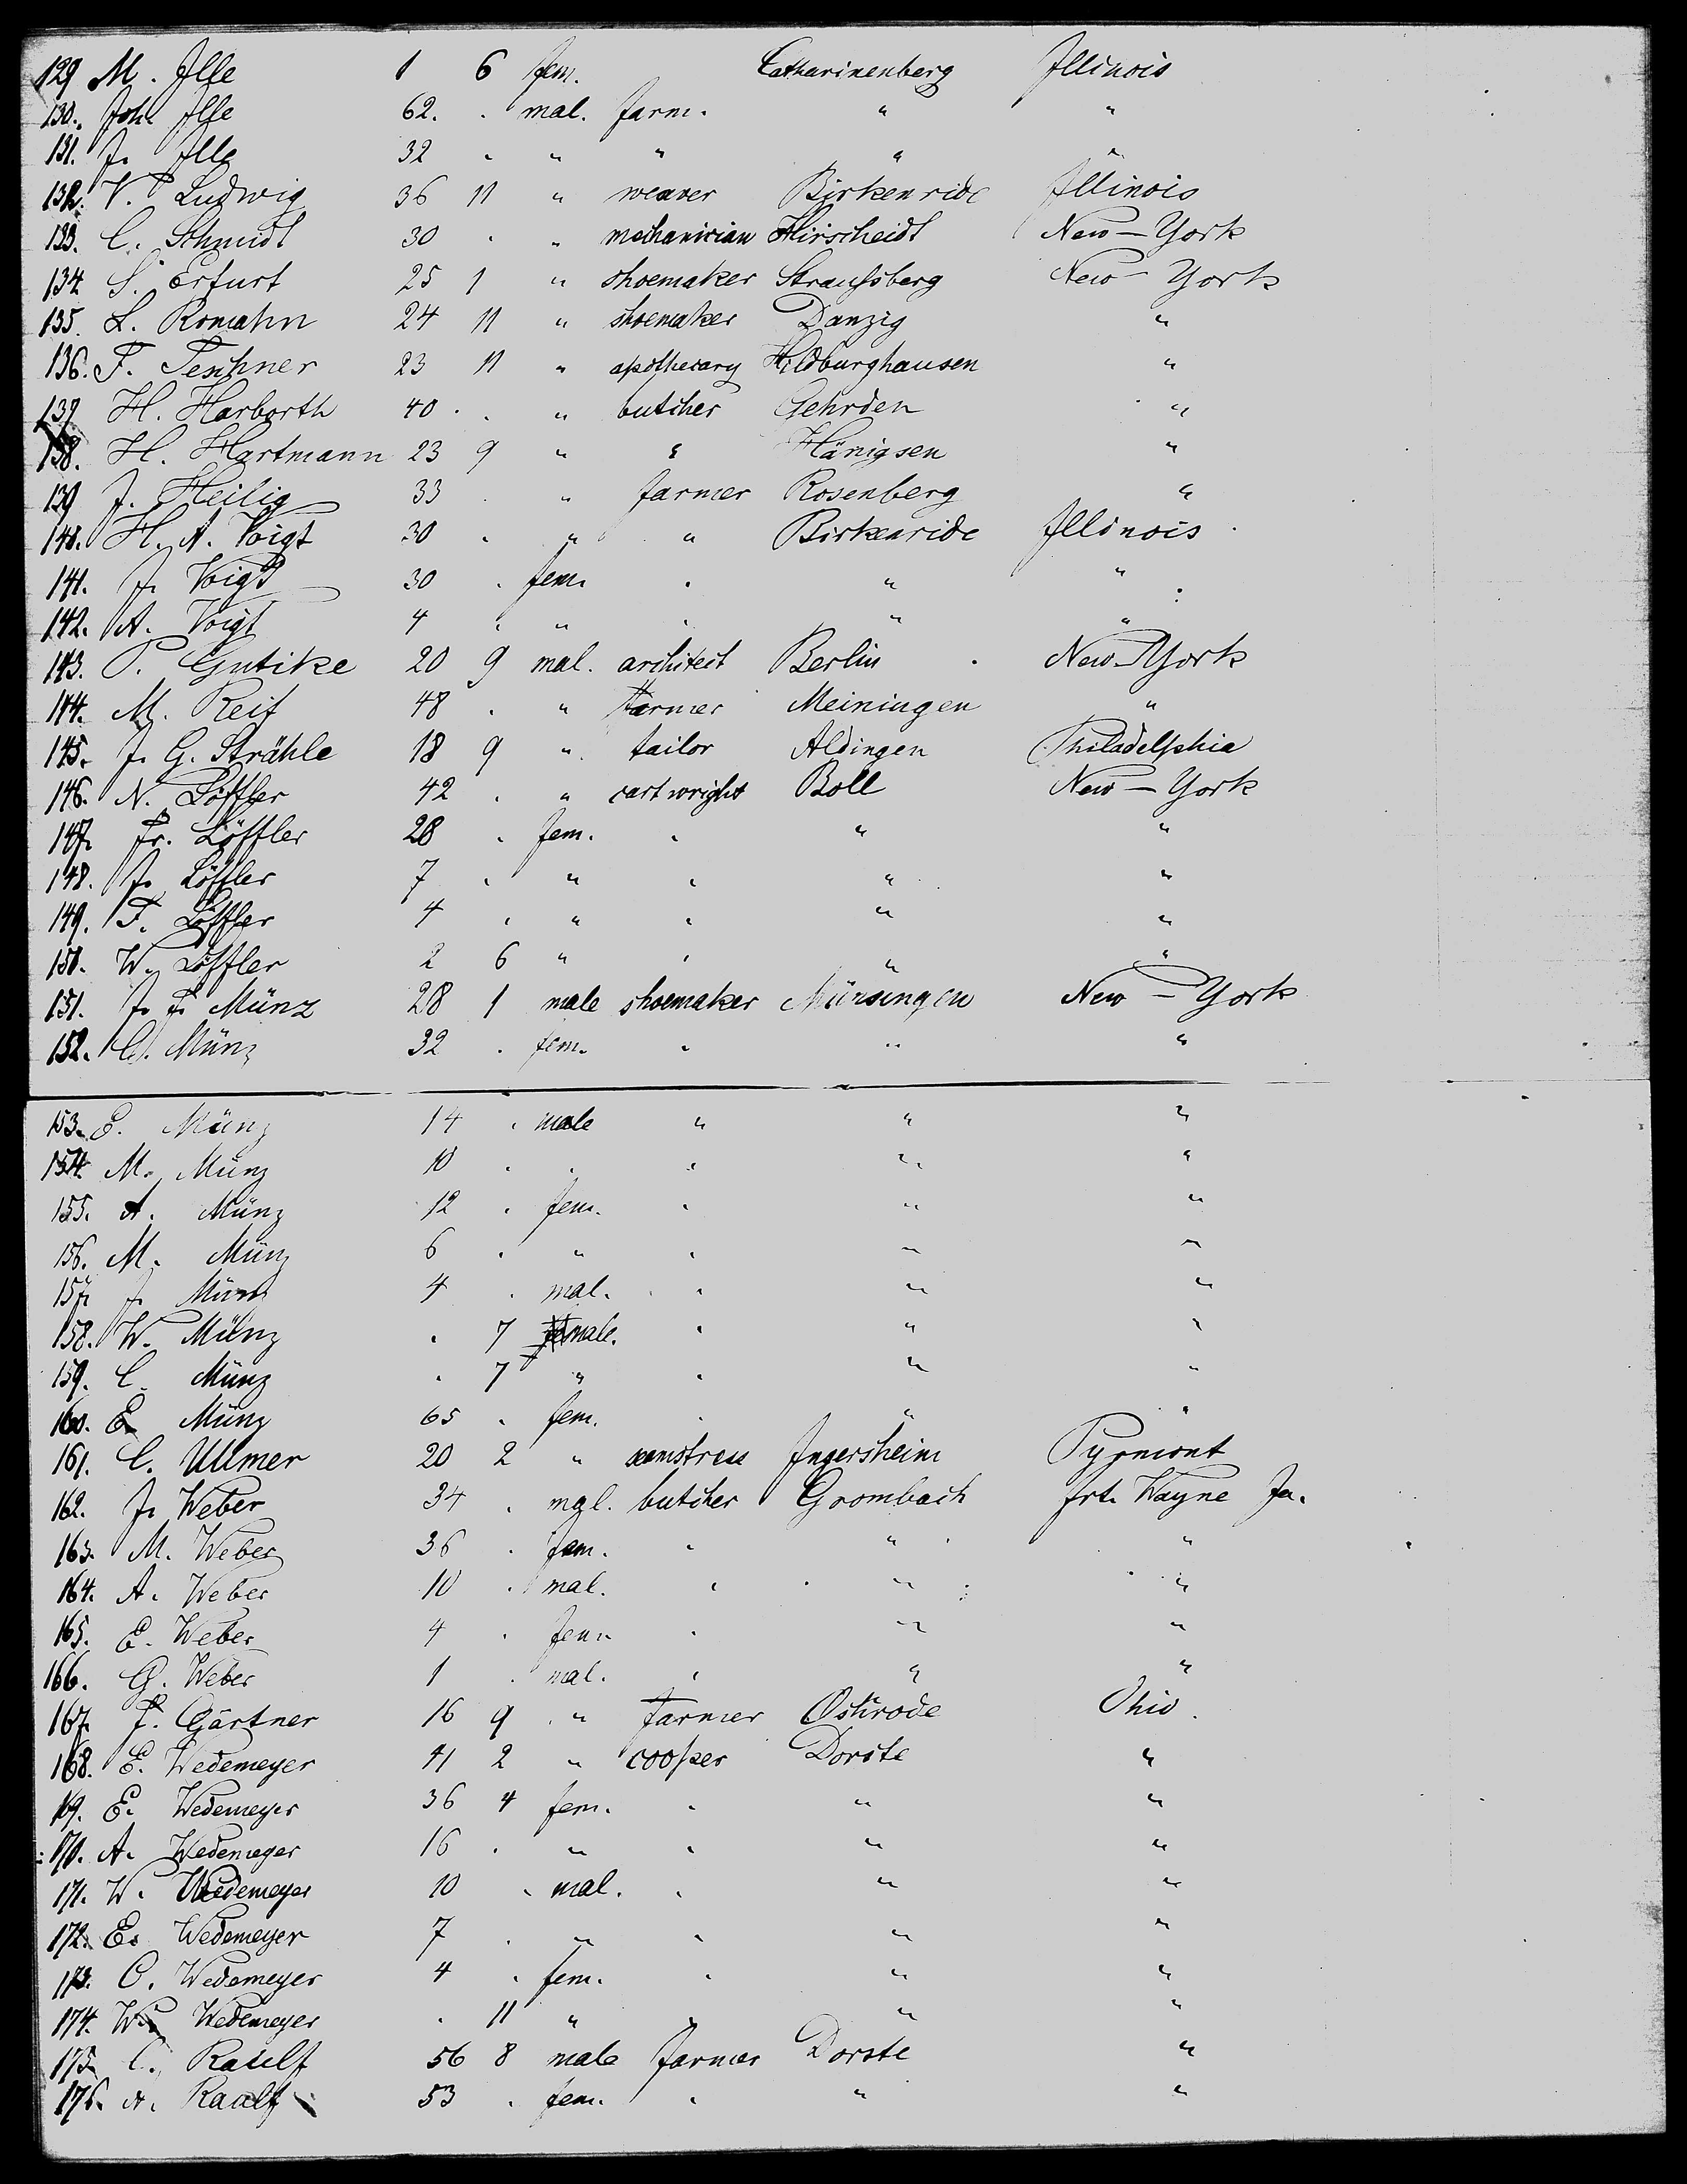 129 M. Ilse 1 6 fem. Catharinenberg Illinois
130. Joh. Ilse 62. . mal. farm. " "
131. J. Ilse 32 " " " " "
132. V. Ludwig 36 11 " weaver Birkenride Illinois
133. C. Schmidt 30 . " mechanician Hirscheidt New-York
134 S. Erfurt 25 1 " shoemaker Straußberg New-York
135. L. Romahn 24 11 " shoemaker Danzig "
136. F. Teschner 23 11 " apothecary Hildburghausen "
137 H. Harborth 40 . " butcher Gehrden "
138. H. Hartmann 23 9 " " Hänigsen "
139 J. Heilig 33 . " farmer Rosenberg "
140. H. A. Voigt 30 . " " Birkenride Illinois
141. J. Voigt 30 . fem. . " "
142. A. Voigt 4 . " . " "
143. P. Gutike 20 9 mal. architect Berlin New-York
144. M. Reif 48 . " farmer Meiningen "
145. J. G. Strähle 18 9 " tailor Aldingen Philadelphia
146. N. Löffler 42 . " cartwright Boll New-York
147. Fr. Löffler 28 . fem. . " "
148. J. Löffler 7 . " . " "
149. F. Löffler 4 . " . " "
150. W. Löffler 2 6 " . " "
151. J. F. Münz 28 1 male shoemaker Münsingen New-York
152. C. Münz 32 . fem. . " "
153. E. Münz 14 . male " " "
154. M. Münz 10 . . . " "
155. A. Münz 12 . fem. . " "
156. M. Münz 6 . " . " "
157. J. Münz 4 . mal. . " "
158. W. Münz . 7 male. . " "
159. C. Münz . 7 " . " "
160. E. Münz 65 . fem. . " "
161. C. Ullmer 20 2 " semstress Ingersheim Pyrmont
162. J. Weber 34 . mal. butcher Grombach frt. Wayne Ja.
163. M. Weber 36 . fem. . " "
164. A. Weber 10 . mal. . " "
165. E. Weber 4 . fem. . " "
166. G. Weber 1 . mal. . " "
167. F. Gärtner 16 9 " farmer Osterode Ohio.
168. E. Wedemeyer 41 2 " cooper Dorste "
169. E. Wedemeyer 36 4 fem. . " "
170. A. Wedemeyer 16 . " . " "
171. W. Wedemeyer 10 . mal. . " "
172. E. Wedemeyer 7 . " . " "
173. C. Wedemeyer 4 . fem. . " "
174. W. Wedemeyer . 11 " . " "
175. C. Raulf 56 8 male farmer Dorste "
176. A. Raulf 53 . fem. . " "